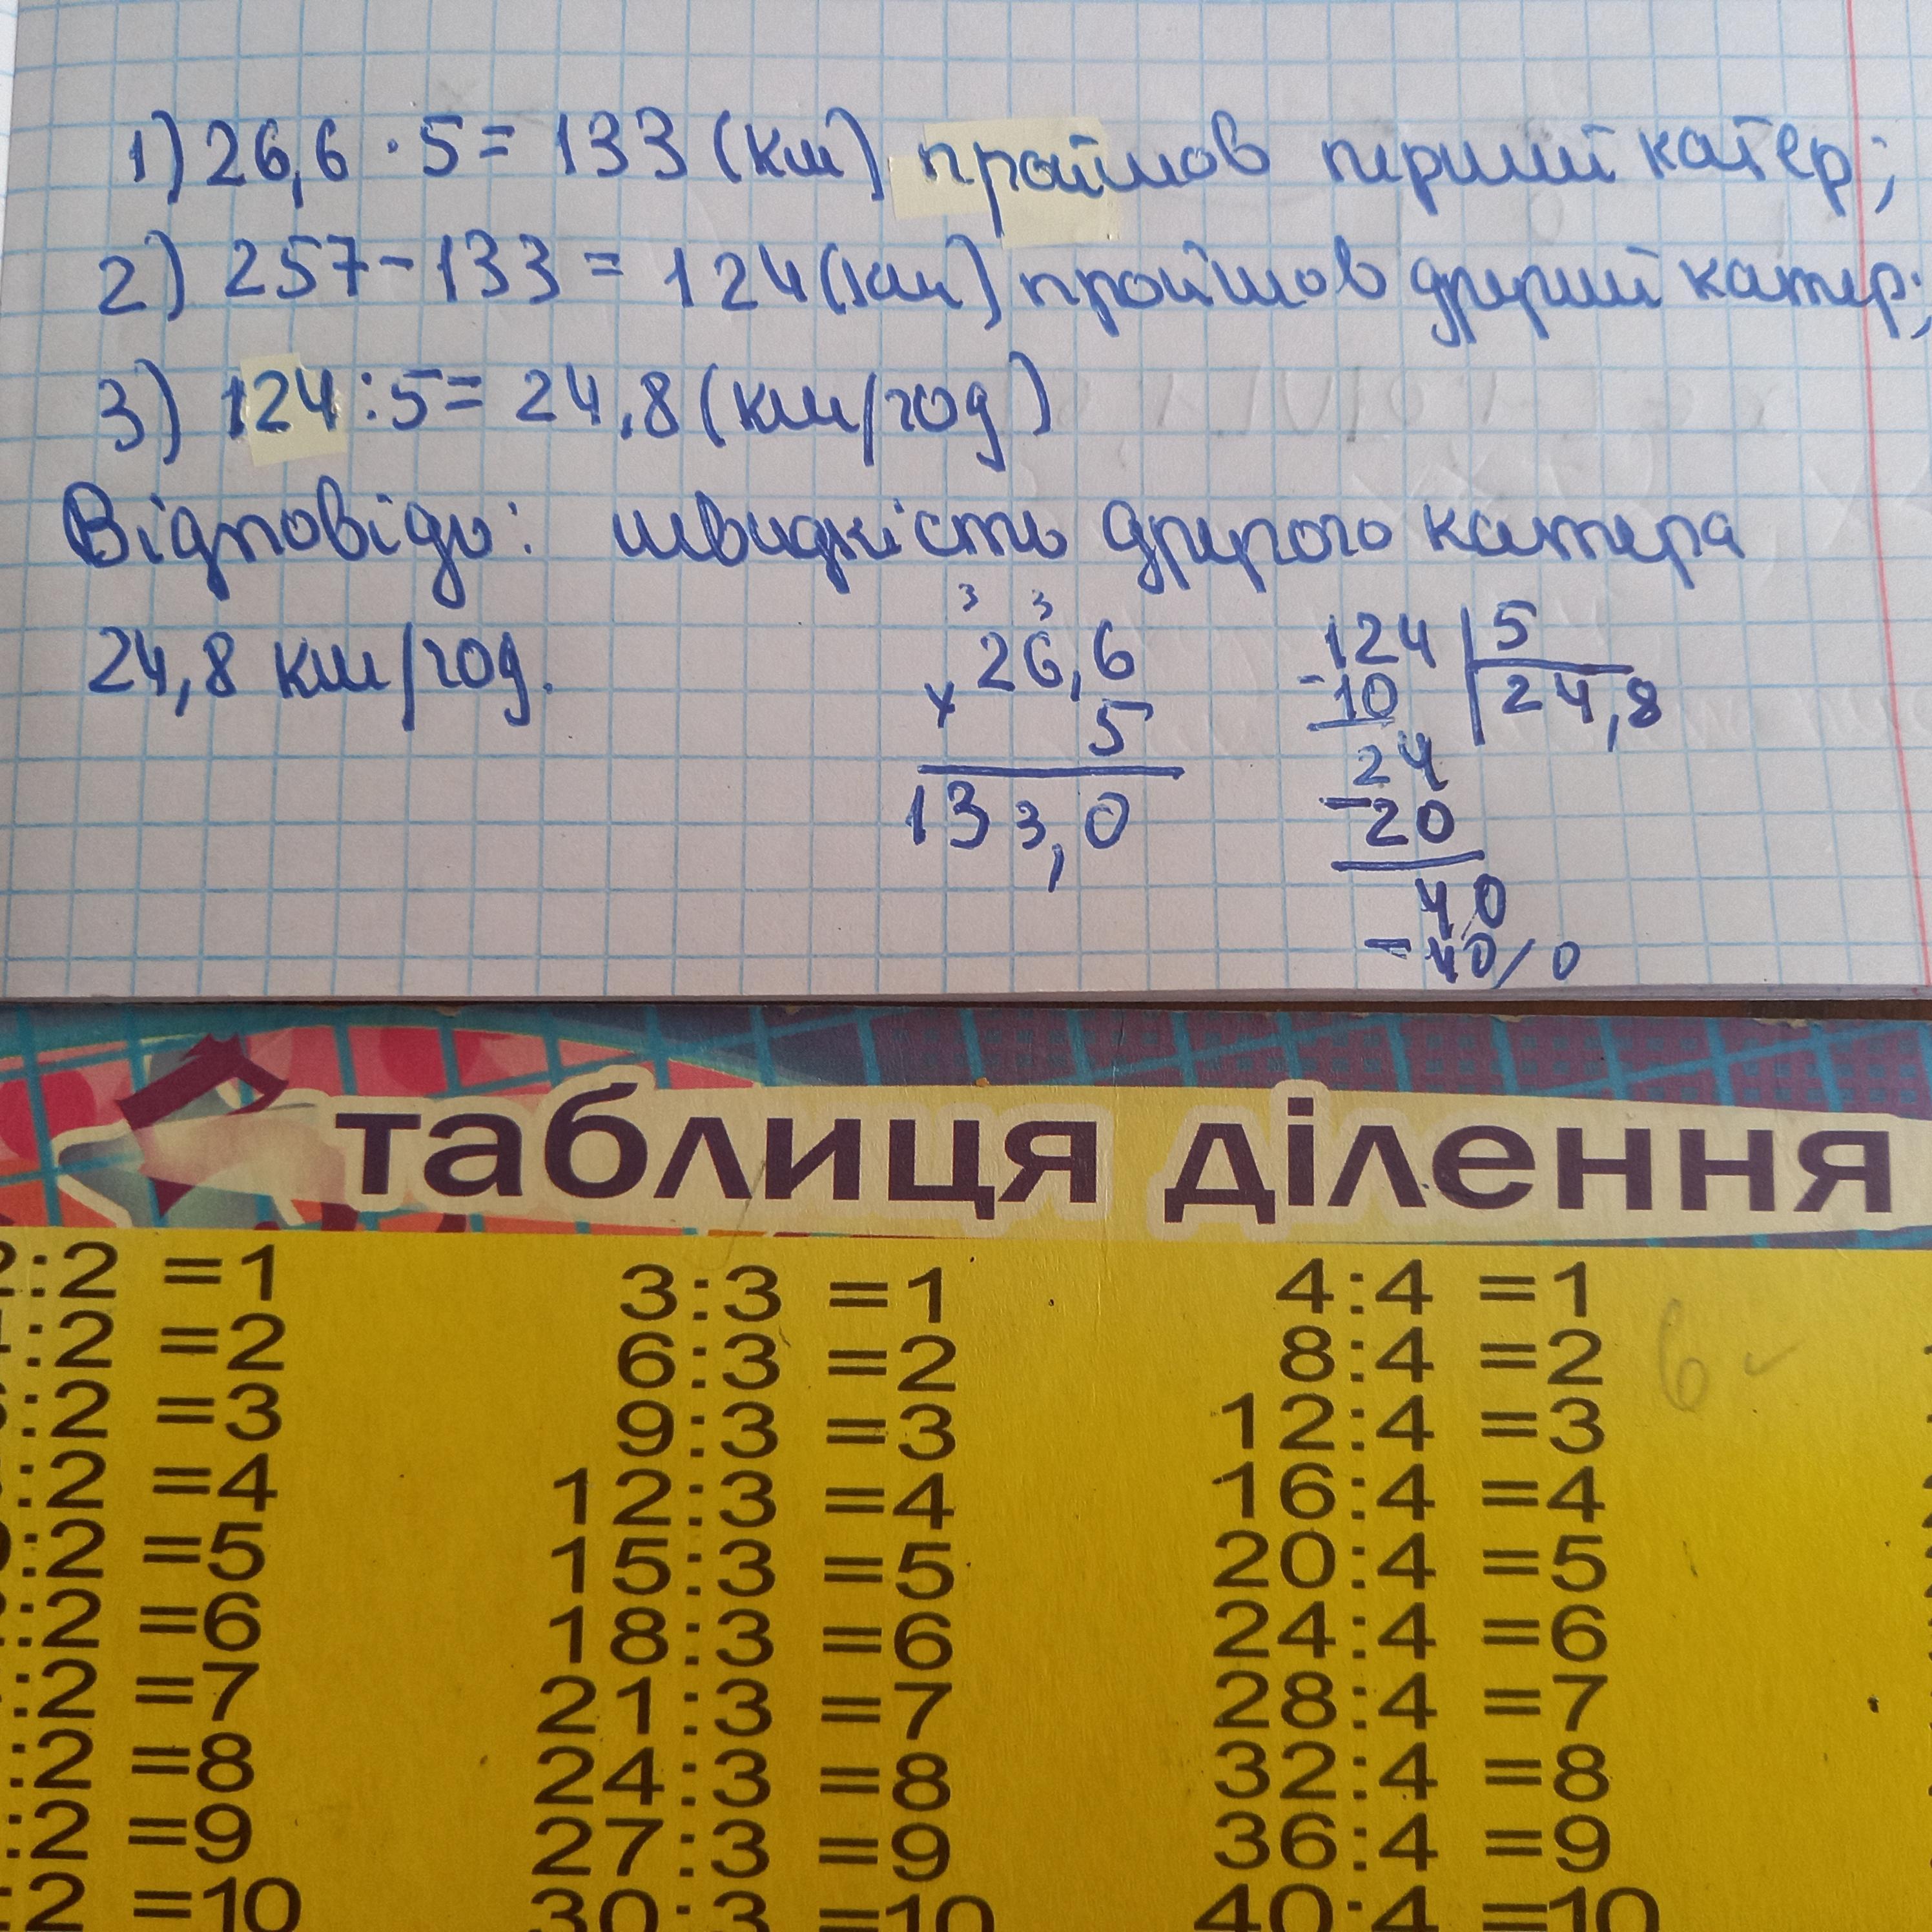 1) 26,6 · 5 = 133 (км) пройшов перший катер;
2) 257 - 133 = 124 (км) пройшов другий катер;
3) 124 : 5 = 24,8 (км/год)
Відповідь: швидкість другого катера
24,8 км/год.
3 3
26,6
x 5
133,0
124 | 5
- 10 | 24,8
24
- 20
40
- 40/0
таблиця ділення
:2 =1 3:3 =1 4:4 =1
:2 =2 6:3 =2 8:4 =2 6
:2 =3 9:3 =3 12:4 =3
:2 =4 12:3 =4 16:4 =4
:2 =5 15:3 =5 20:4 =5
:2 =6 18:3 =6 24:4 =6
:2 =7 21:3 =7 28:4 =7
:2 =8 24:3 =8 32:4 =8
:2 =9 27:3 =9 36:4 =9
:2 =10 30:3 =10 40:4 =10